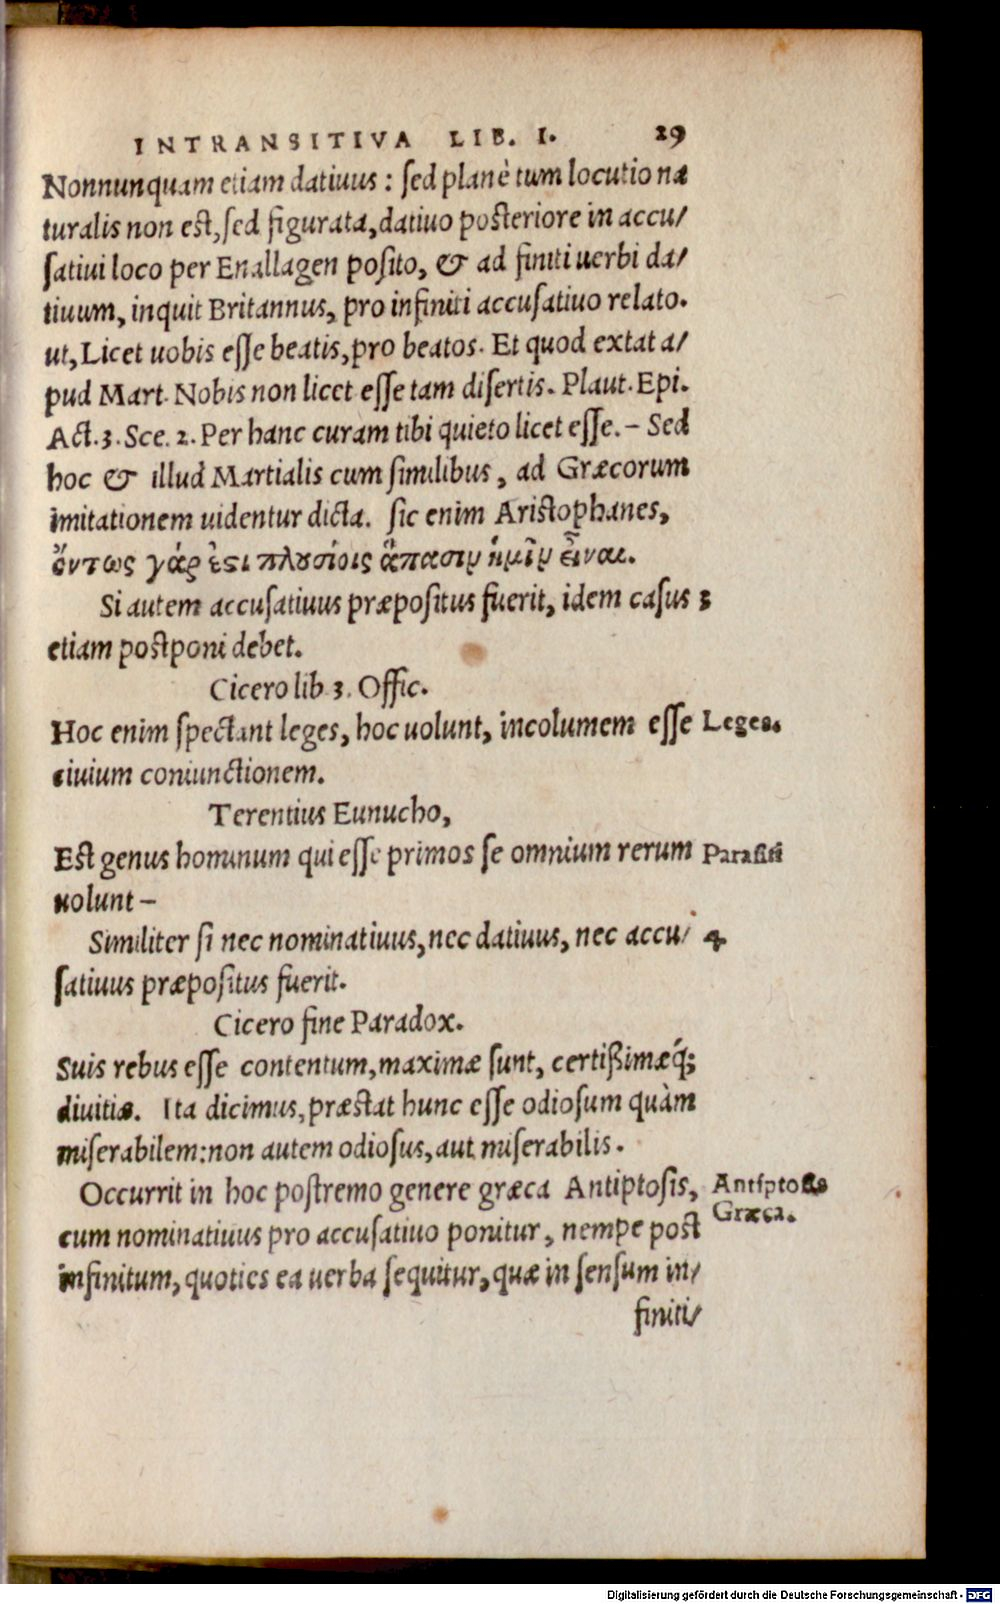 INTRANSITIVA LIB. I. 29
Nonnunquam etiam datiuus : sed planè tum locutio na
turalis non est, sed figurata, datiuo posteriore in accu/
satiui loco per Enallagen posito, & ad finiti uerbi da/
tiuum, inquit Britannus, pro infiniti accusatiuo relato.
ut, Licet uobis esse beatis, pro beatos. Et quod extat a/
pud Mart. Nobis non licet esse tam disertis. Plaut. Epi.
Act. 3. Sce. 2. Per hanc curam tibi quieto licet esse. – Sed
hoc & illud Martialis cum similibus, ad Græcorum
imitationem uidentur dicta. sic enim Aristophanes,
ὄντως γάρ ἐςι πλουσίοις ἅπασιν ἡμῖν εἶναι.
Si autem accusatiuus præpositus fuerit, idem casus 3
etiam postponi debet.
Cicero lib 3. Offic.
Hoc enim spectant leges, hoc uolunt, incolumem esse Leges.
ciuium coniunctionem.
Terentius Eunucho,
Est genus hominum qui esse primos se omnium rerum Parasiti
uolunt –
Similiter si nec nominatiuus, nec datiuus, nec accu/ 4
satiuus præpositus fuerit.
Cicero fine Paradox.
Suis rebus esse contentum, maximæ sunt, certißimæq́;
diuitiæ. Ita dicimus, præstat hunc esse odiosum quàm
miserabilem: non autem odiosus, aut miserabilis.
Occurrit in hoc postremo genere græca Antiptosis, Antiptosis
Græca.
cum nominatiuus pro accusatiuo ponitur, nempe post
infinitum, quoties ea uerba sequitur, quæ in sensum in/
finiti/
Digitalisierung gefördert durch die Deutsche Forschungsgemeinschaft - DFG